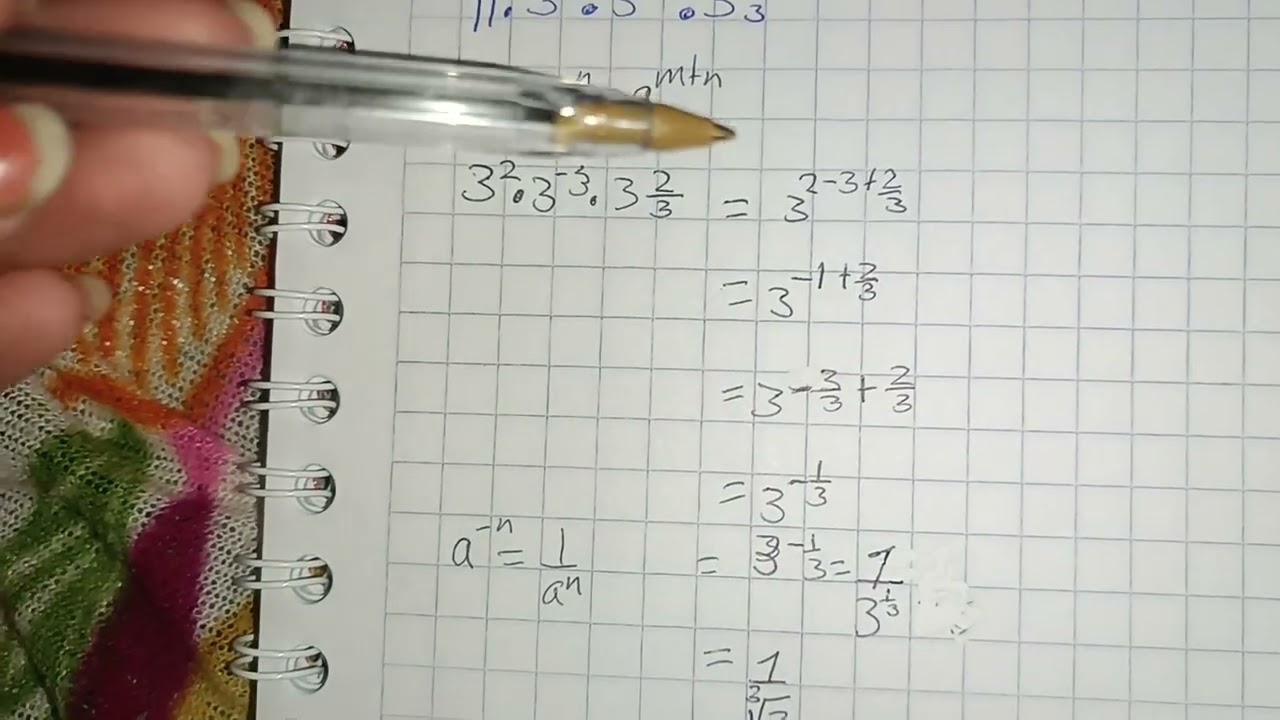 n  m+n
3²·3⁻³·3 2/3 = 3^(2-3+2/3)
= 3^(-1+2/3)
= 3^(-3/3+2/3)
= 3^(-1/3)
a⁻ⁿ = 1/aⁿ = 3^(-1/3) = 1/3^(1/3)
= 1/∛